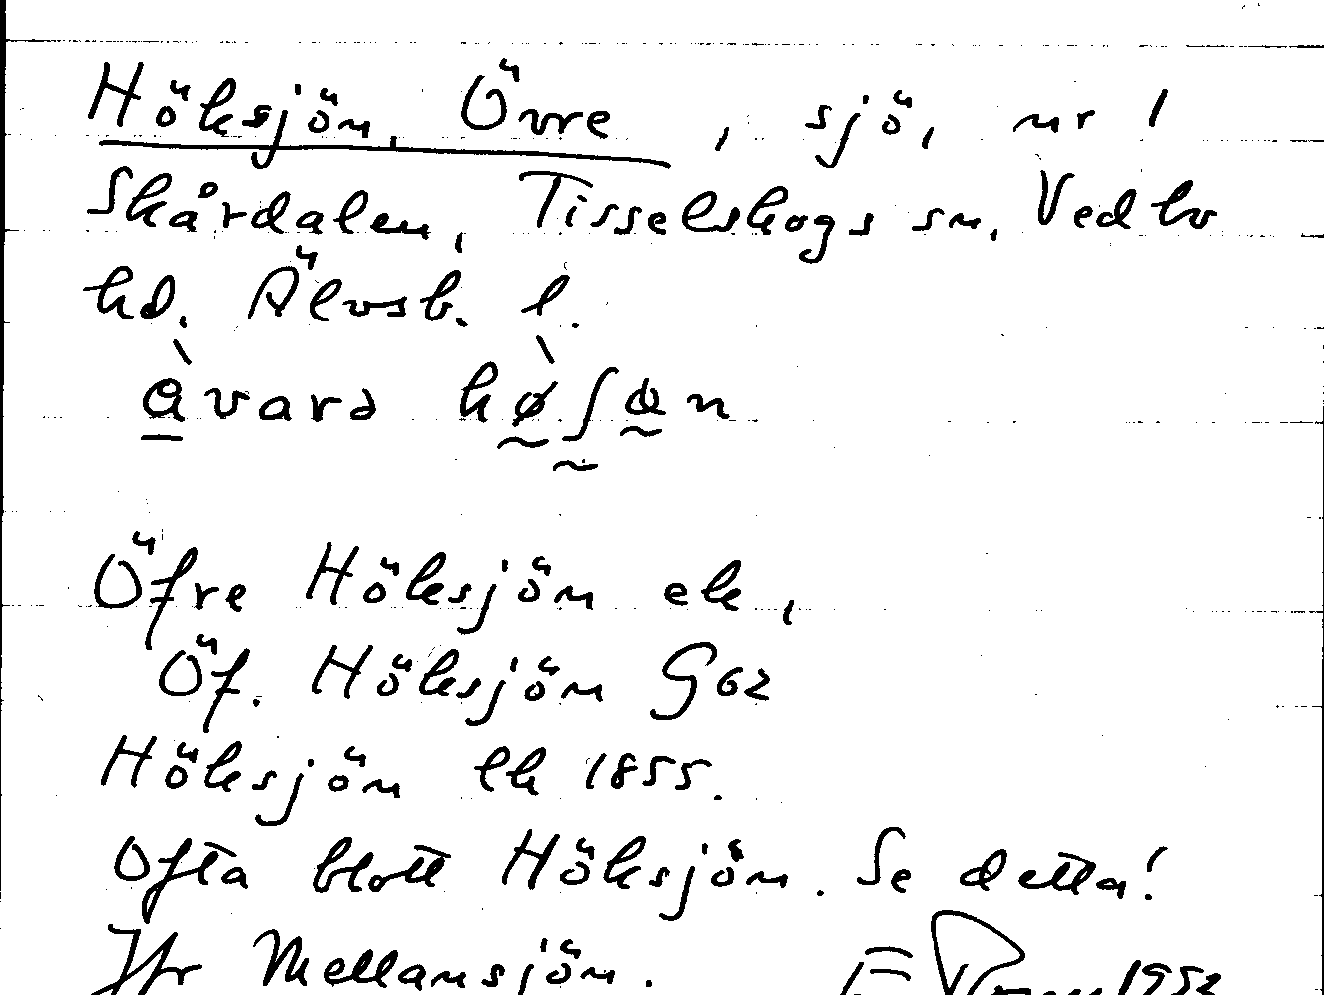 Höksjön, Övre, sjö, nr 1
Skårdalen, Tisselskogs sn, Vedbo
hd. Älvsb. l.
Öfre Höksjön ek,
Öf. Höksjön G62
Höksjön lk 1855.
Ofta blott Höksjön. Se detta!
Jfr Mellansjön. 1952